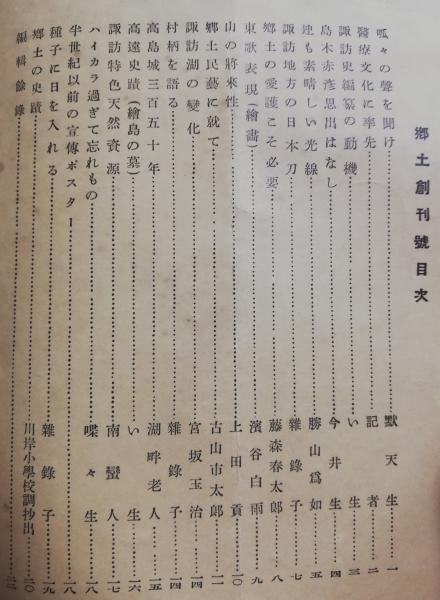 鄕土創刊號目次
呱々の聲を聞け……默天生…一
醫療文化に率先……記者…二
諏訪史編纂の動機……い生…三
島木赤彦思出はなし……今井生…四
連も素晴しい光線……勝山爲如…五
諏訪地方の日本刀……雜錄子…七
鄕土の愛護こそ必要……藤森春太郎…八
東歌表現(繪畵)……濱谷白雨…九
山の將來性……上田貢…一〇
鄕土民藝に就て……古山市太郎…一一
諏訪湖の變化……宮坂玉治…一四
村柄を語る……雜錄子…一四
高島城三百五十年……湖畔老人…一五
高遠史蹟(繪島の墓)……い生…一六
諏訪特色天然資源……南蠻人…一七
ハイカラ過ぎて忘れもの……喋々生…一八
半世紀以前の宣傳ポスター……一八
種子に日を入れる……雜錄子…一九
鄕土の史蹟……川岸小學校調抄出…二〇
編輯餘錄……